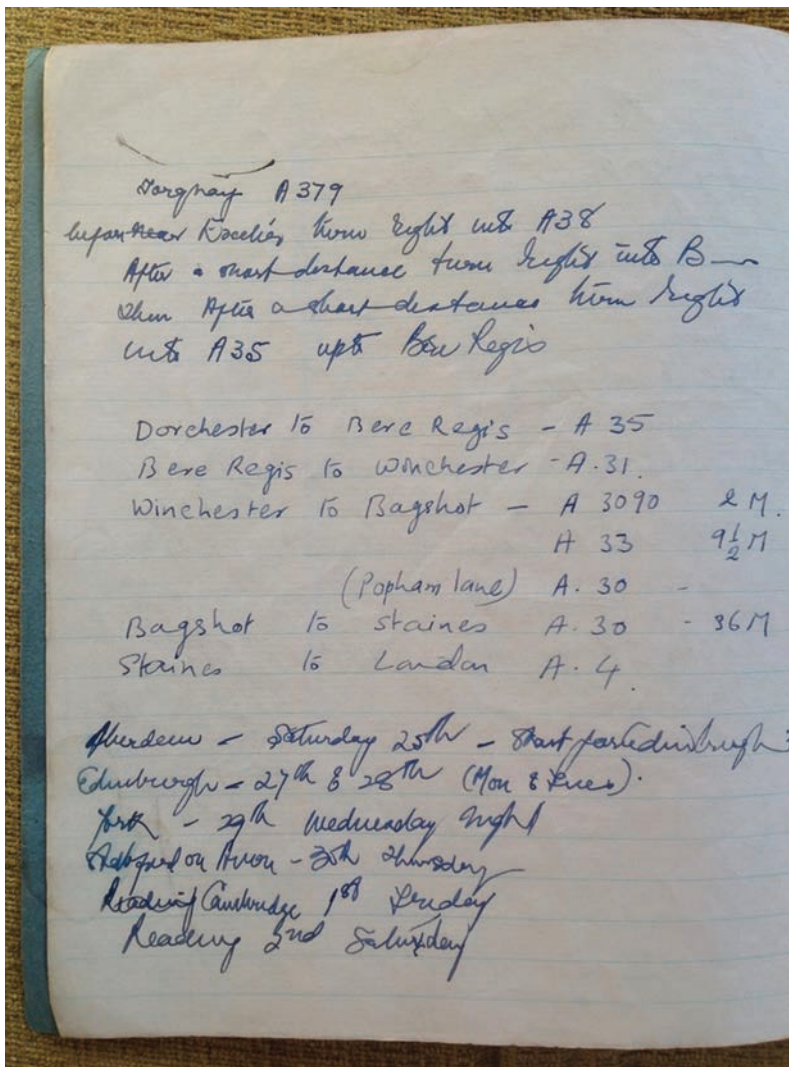 Torquay A379
before near Exeter, turn right into A38
After a short distance turn right into B —
then After a short distance turn right
into A35 upto Bere Regis
Dorchester to Bere Regis - A 35
Bere Regis to Winchester - A.31.
Winchester to Bagshot - A 3090 2 M.
A 33 9½ M
(Popham lane) A. 30 -
Bagshot to Staines A. 30 - 36 M
Staines to London A. 4.
Aberdeen - Saturday 25th - Start for Edinburgh
Edinburgh - 27th & 28th (Mon & Tues).
York - 29th Wednesday night
Stratford on Avon - 30th Thursday
Reading Cambridge 1st Friday
Reading 2nd Saturday